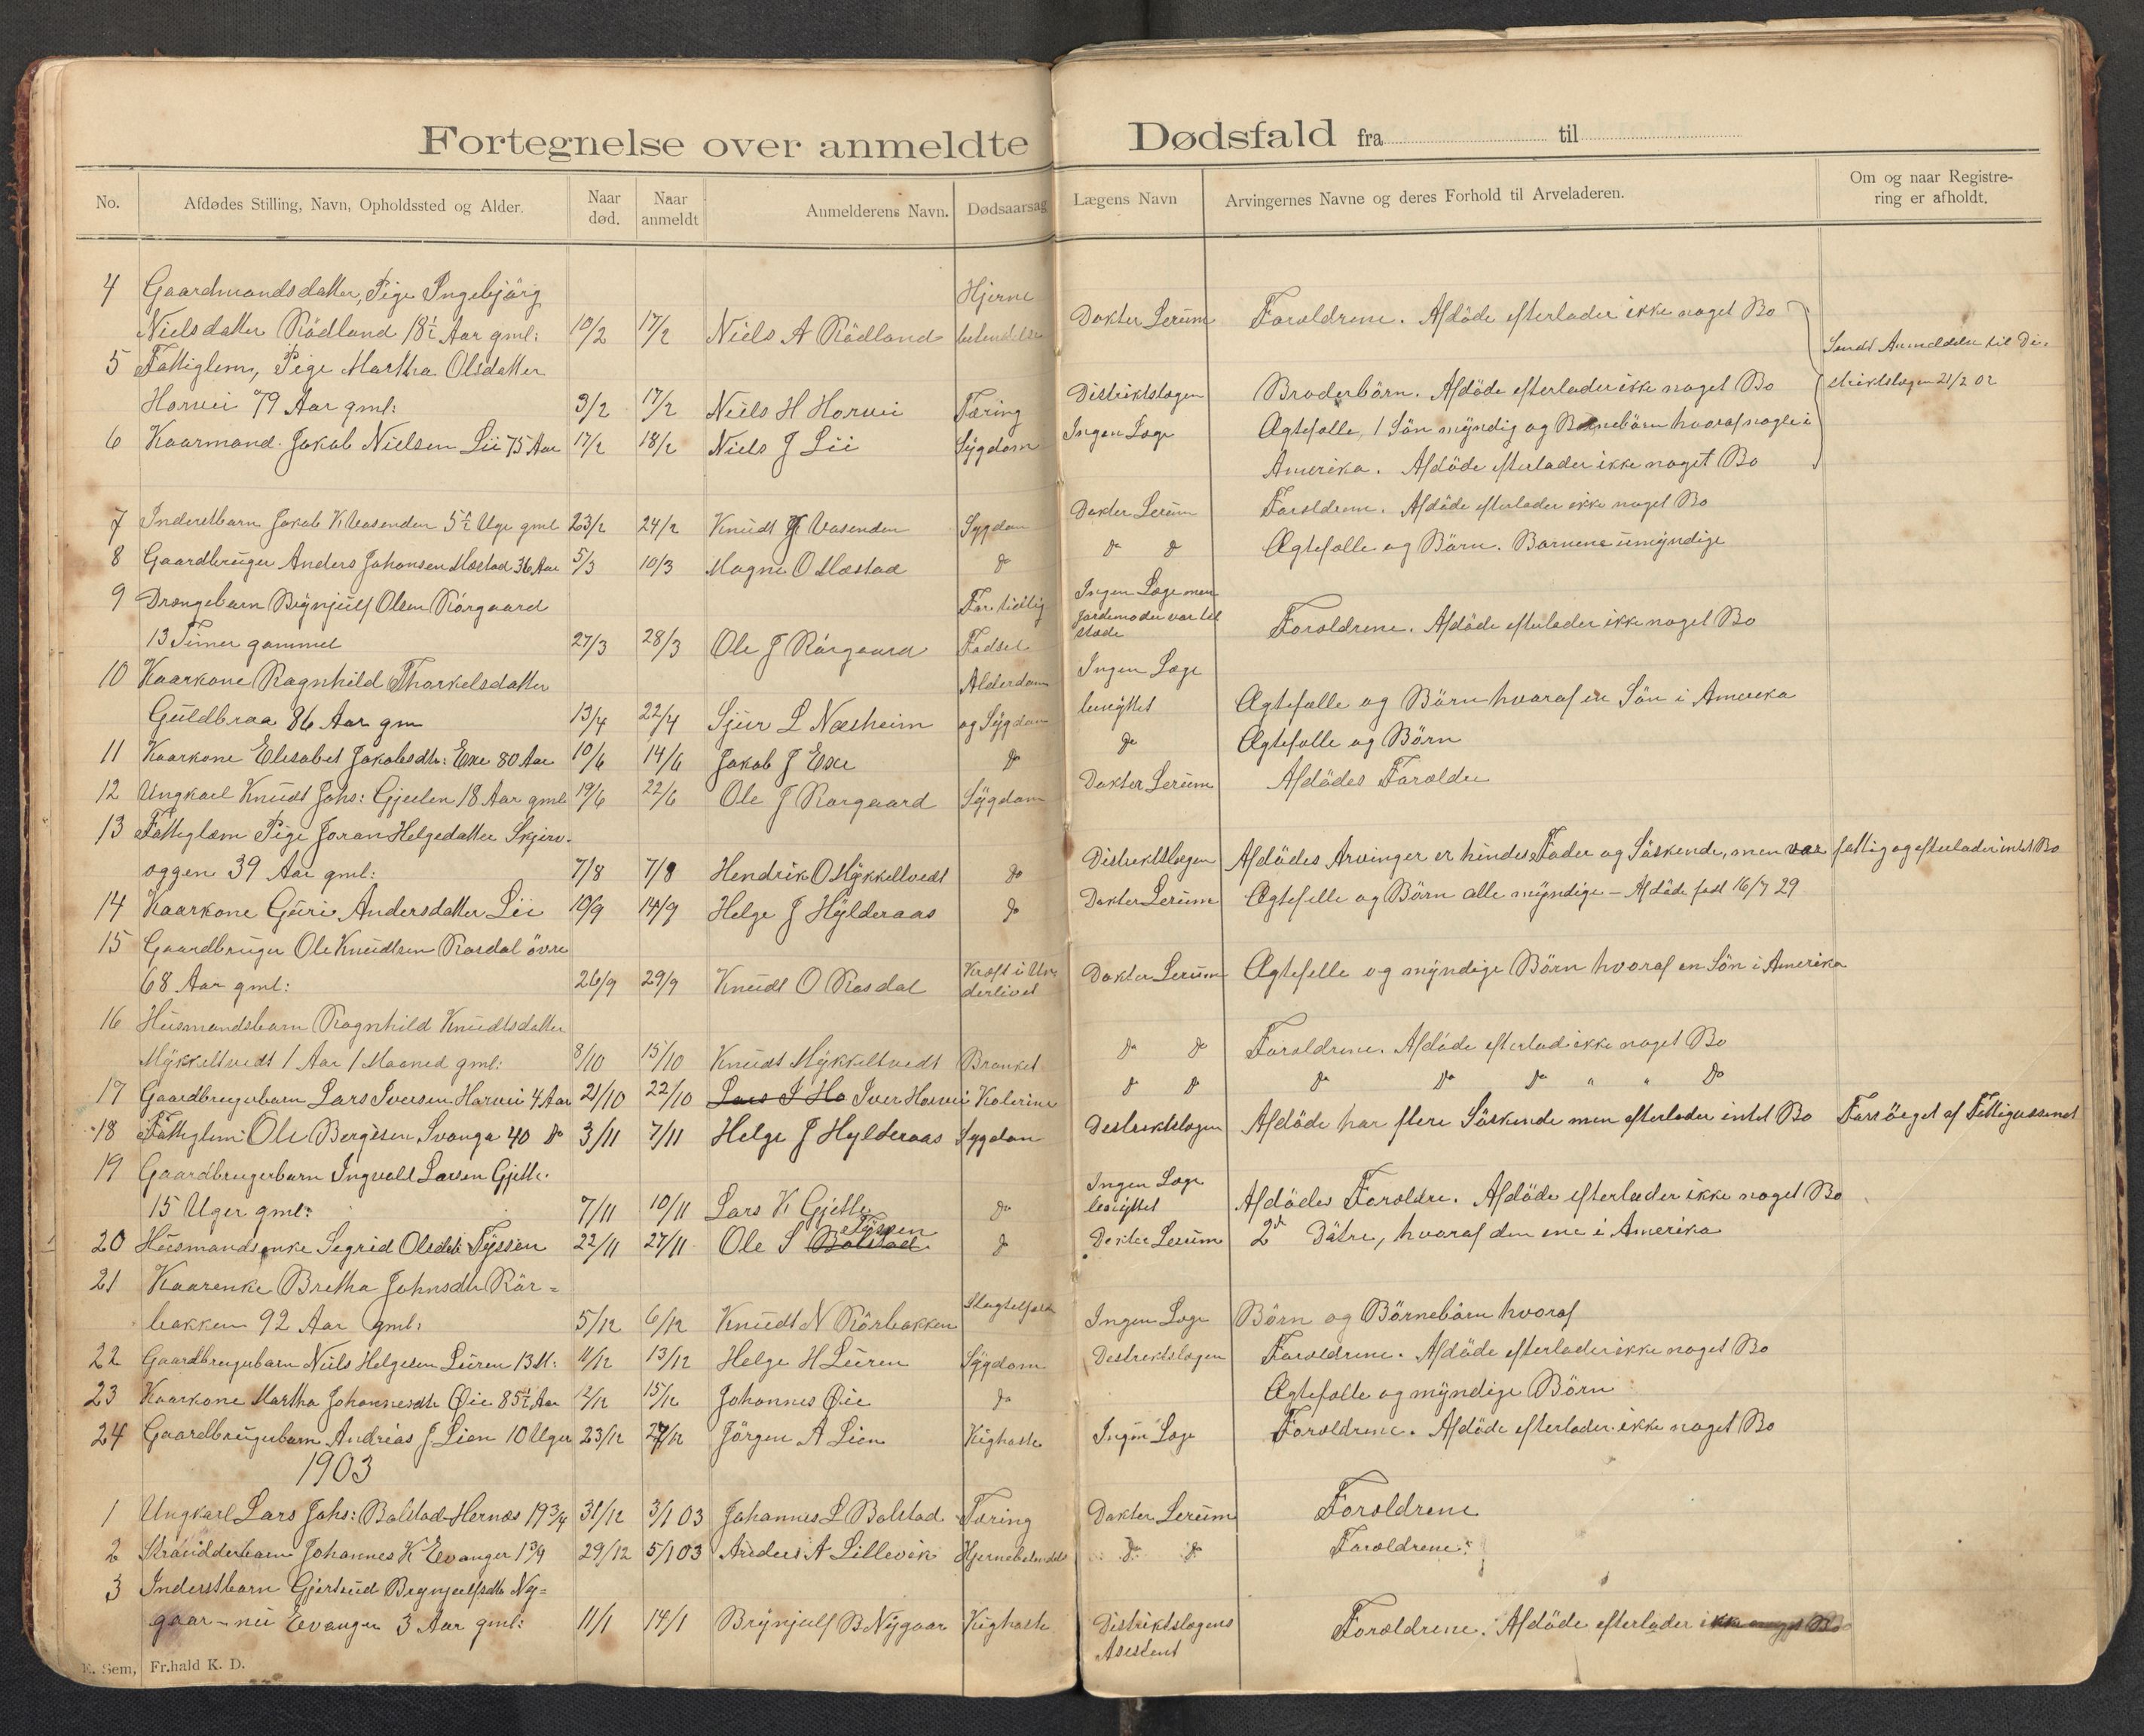 Fortegnelse over anmeldte Dødsfald fra til
No. Afdødes Stilling, Navn, Opholdssted og Alder. Naar død. Naar anmeldt Anmelderens Navn. Dødsaarsag Lægens Navn Arvingernes Navne og deres Forhold til Arveladeren. Om og naar Registrering er afholdt.
4 Gaardmandsdatter, Pige Ingebjörg Hjerne
Nielsdatter Rödland 18½ Aar gml: 10/2 17/2 Niels A Rödland betendelse Dokter Lerum Foroldrene. Afdöde efterlader ikke noget Bo
5 Fattiglem, Pige Martha Olsdatter Sendt Anmeldelse til Di-
Horvei 79 Aar gml: 3/2 17/2 Niels H Horvei Tæring Distriktslægen Broderbörn. Afdöde efterlader ikke noget Bo striktslægen 21/2 02
6 Kaarmand Jakob Nielsen Lii 75 Aar 17/2 18/2 Niels J Lii Sygdom Ingen Læge Ægtefolle, 1 Sön myndig og Barnebörn hvoraf nogle i
Amerika. Afdöde efterlader ikke noget Bo
7 Inderstbarn Jakob K Vasenden 5½ Uge gml 23/2 24/2 Knudt K Vasenden Sygdom Dokter Lerum Foroldrene. Afdöde efterlader ikke noget Bo
8 Gaardbruger Anders Johansen Mæstad 36 Aar 5/3 10/3 Magne O Mæstad do do do Ægtefolle og Börn. Barnene umyndige
9 Drengebarn Brynjulf Olsen Rörgaard For tidlig Ingen Læge men
Jordemoder var til
13 Timer gammel 27/3 28/3 Ole J Rörgaard Fødsel stede Foroldrene. Afdöde efterlader ikke noget Bo
10 Kaarkone Ragnhild Thorkelsdatter Alderdom Ingen Læge
Guldbraa 86 Aar gm 13/4 22/4 Sjur L Næsheim og Sygdom benyttet Ægtefælle og Börn hvoraf en Sön i Amerika
11 Kaarkone Elisabet Jakobsdtr: Exe 80 Aar 10/6 14/6 Jakob J Exe do do Ægtefolle og Börn
12 Ungkarl Knudt Johs: Gjeilen 18 Aar gml 19/6 22/6 Ole J Rorgaard Sygdom Dokter Lerum Afdödes Forældre
13 Fattiglem Pige Joran Helgedatter Skjerv-
oggen 39 Aar gml: 7/8 7/8 Hendrik O Mykkeltvedt do Distriktslægen Afdödes Arvinger er hindes Fader og Söskende, men var fattig og efterlader intet Bo
14 Kaarkone Guri Andersdatter Lii 10/9 14/9 Helge J Hylderaas do Dokter Lerum Ægtefelle og Börn alle myndige – Afdöde født 16/7 29
15 Gaardbruger Ole Knudtsen Rasdal övre
68 Aar gml: 26/9 29/9 Knudt O Rasdal Kræft i Un-
derlivet Dokter Lerum Ægtefelle og myndige Börn hvoraf en Sön i Amerika
16 Husmandsbarn Ragnhild Knudtsdatter
Mykkeltvedt 1 Aar 1 Maaned gml: 8/10 15/10 Knudt Mykkeltvedt Bronket do do Foroldrene. Afdöde efterlad ikke noget Bo
17 Gaardbrugerbarn Lars Iversen Horvei 4 Aar 21/10 22/10 Lars I Ho Iver Horvei Kolerine do do do do do " " Do
18 Fattiglem Ole Bergesen Svanga 40 do 3/11 7/11 Helge J Hylderaas Sygdom Destriktslægen Afdöde har flere Söskende men efterlader intet Bo Forsörget af Fattigvæsenet
19 Gaardbrugerbarn Ingvald Larsen Gjelle. Ingen Læge
15 Uger gml: 7/11 10/11 Lars K Gjelle do benyttet Afdödes Foroldre. Afdöde efterlader ikke noget Bo
Tyssen
20 Husmandsenke Sigrid Olsdtr Tyssen 22/11 27/11 Ole S Bolstad do Dokter Lerum 2 Dötre, hvoraf den ene i Amerika
21 Kaarenke Bretha Johnsdtr Rör-
bakken 92 Aar gml: 5/12 6/12 Knudt N Rörbakken Slagtelfælde Ingen Læge Börn og Börnebörn hvoraf
22 Gaardbrugerbarn Niels Helgesen Leiren 13 M: 11/12 13/12 Helge H Leiren Sygdom Destriktslægen Foroldrene. Afdöde efterlader ikke noget Bo
23 Kaarkone Martha Johannesdtr Øie 85½ Aar 15/12 Johannes Øie do Ægtefolle og myndige Börn
24 Gaardbrugerbarn Andreas J Lien 10 Uger 23/12 27/12 Jörgen A Lien Kighoste Ingen Læge Foroldrene. Afdöde efterlader ikke noget Bo
1903
1 Ungkarl Lars Johs: Bolstad-Hernæs 19 3/4 31/12 3/1 03 Johannes L Bolstad Tæring Dokter Lerum Foroldrene
2 Strandderbarn Johannes K Evanger 1 3/4 29/12 5/1 03 Anders A Lillevik Hjernebetendels do do Foroldrene.
3 Inderstbarn Gjertrud Brynjulfsdtr Ny-
gaar – nu Evanger 3 Aar gml: 11/1 14/1 Brynjulf B Nygaar Kighoste Distriktslægens Foroldrene. Afdöde efterlader ikke noget Bo
Assistent
E. Sem, Fr.hald K. D.